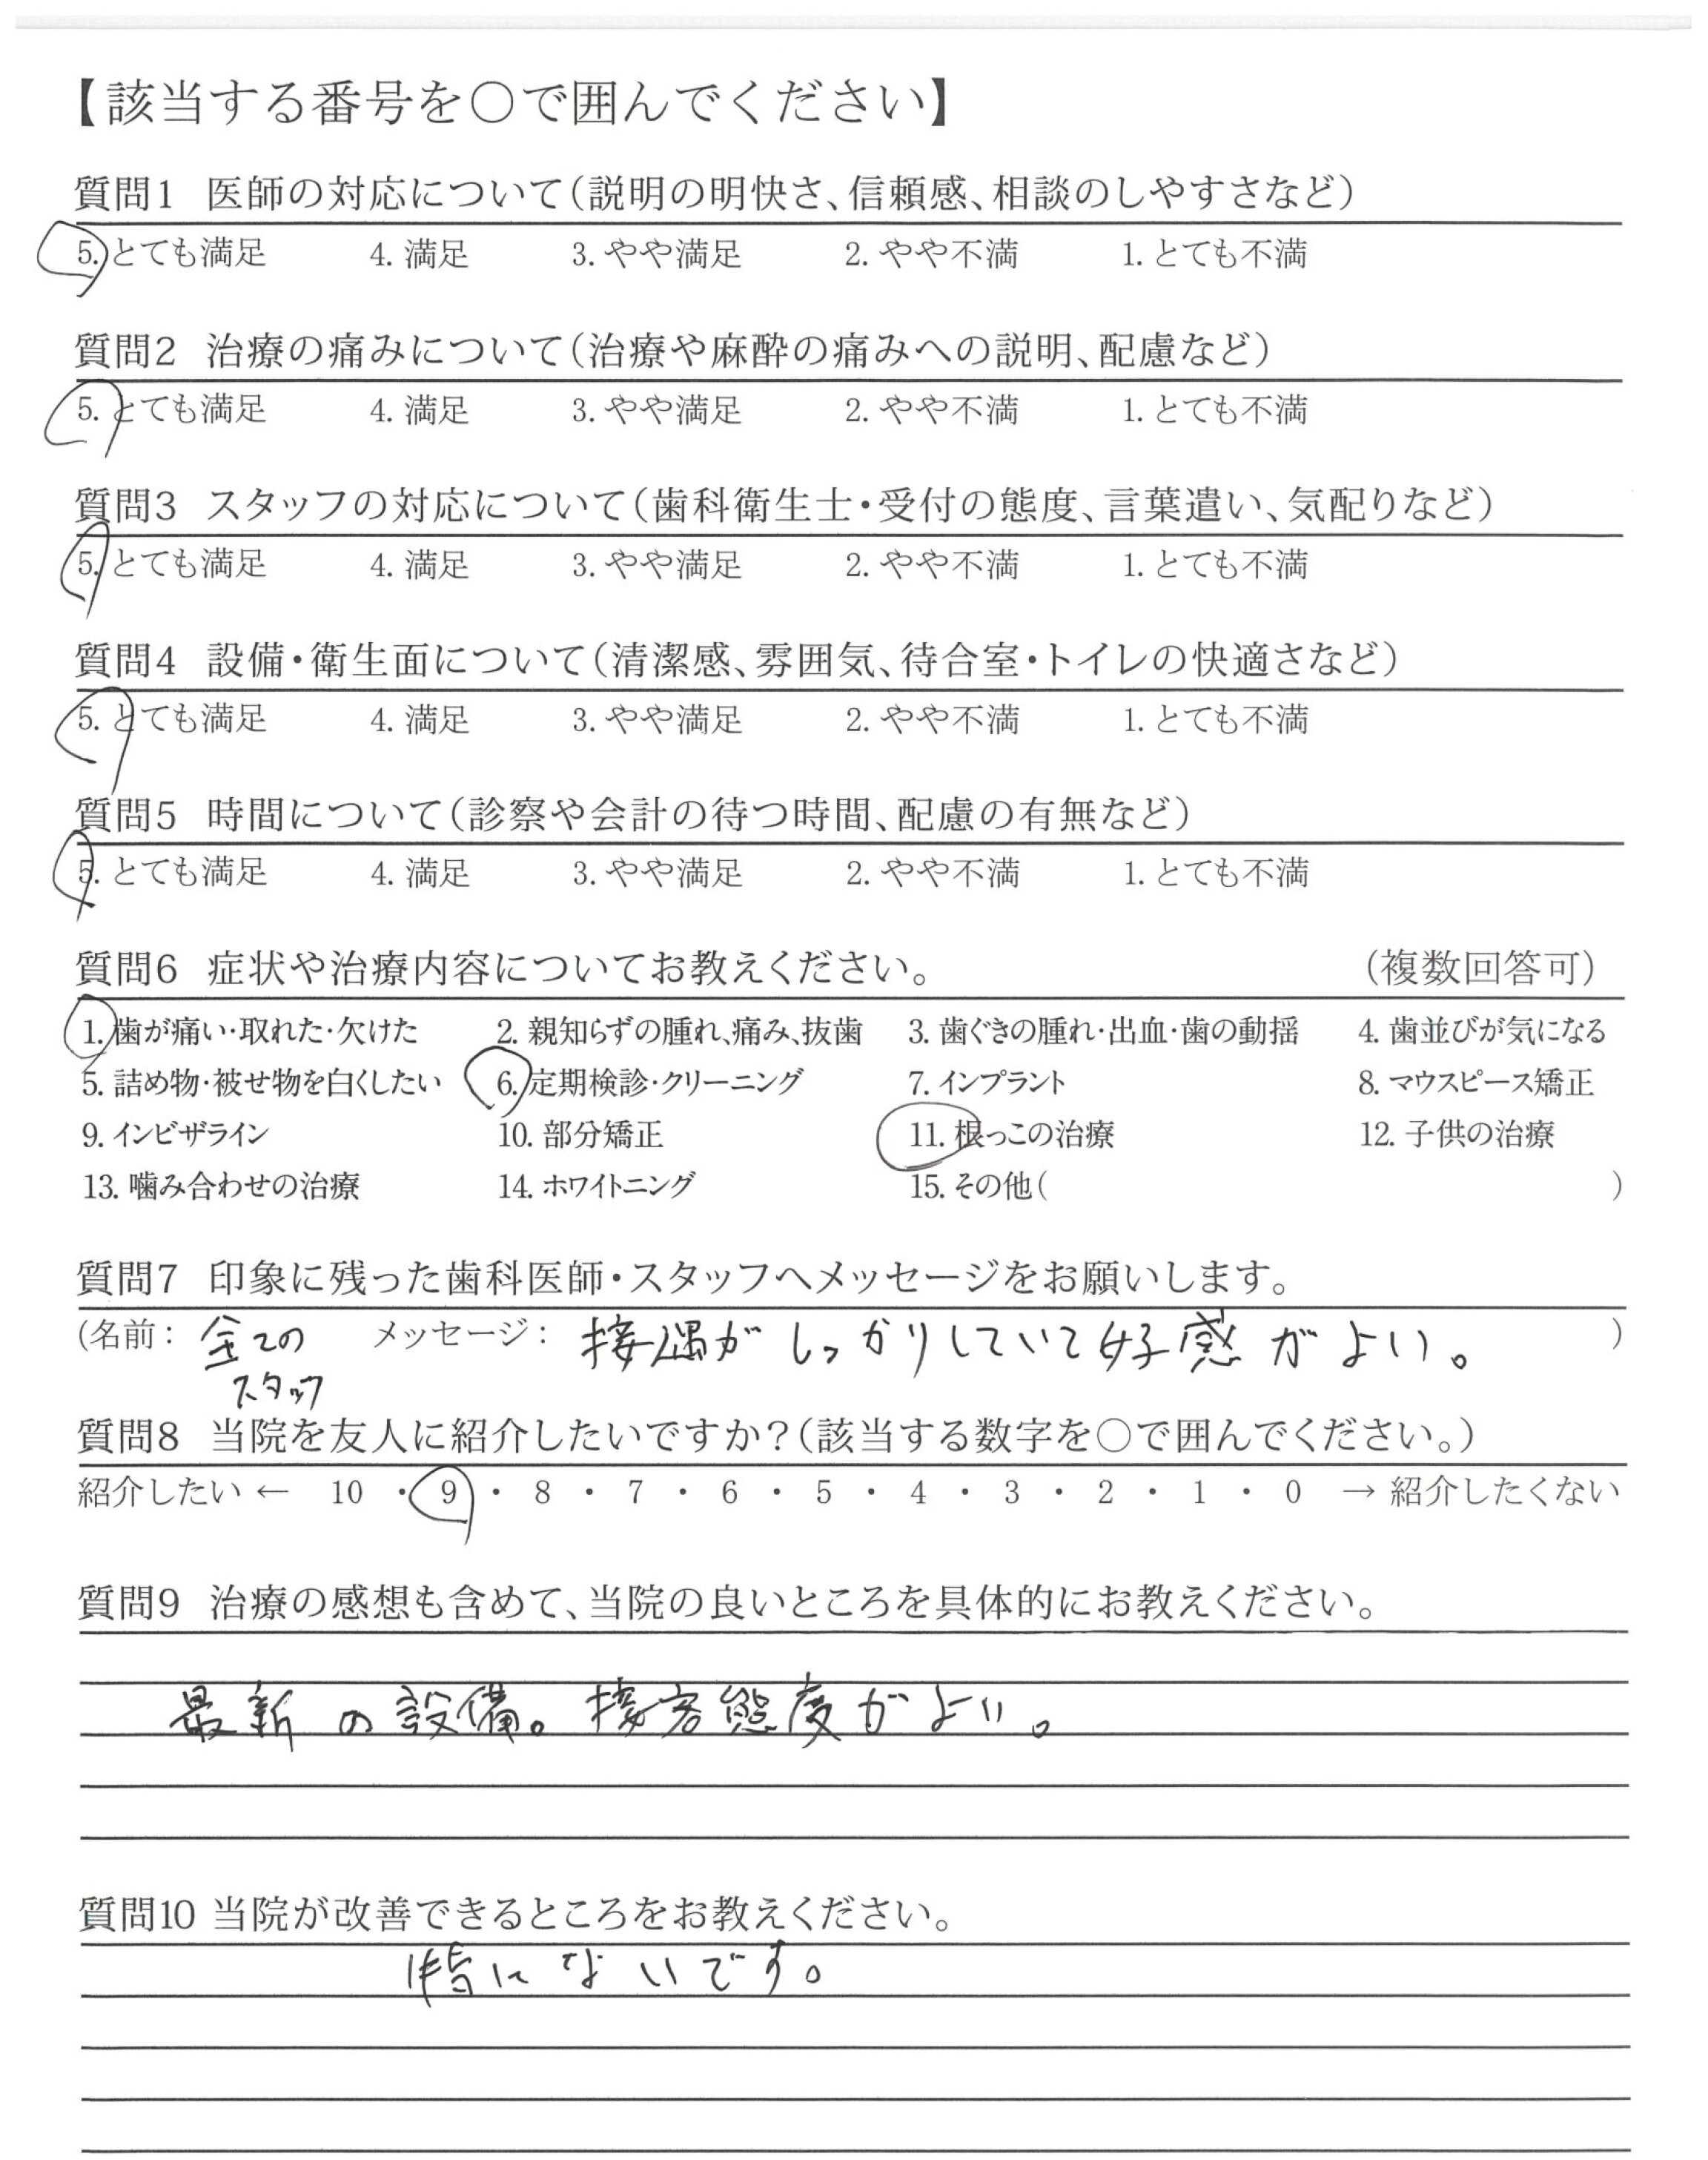 【該当する番号を○で囲んでください】
質問1 医師の対応について(説明の明快さ、信頼感、相談のしやすさなど)
5. とても満足 4. 満足 3. やや満足 2. やや不満 1. とても不満
質問2 治療の痛みについて(治療や麻酔の痛みへの説明、配慮など)
5. とても満足 4. 満足 3. やや満足 2. やや不満 1. とても不満
質問3 スタッフの対応について(歯科衛生士・受付の態度、言葉遣い、気配りなど)
5. とても満足 4. 満足 3. やや満足 2. やや不満 1. とても不満
質問4 設備・衛生面について(清潔感、雰囲気、待合室・トイレの快適さなど)
5. とても満足 4. 満足 3. やや満足 2. やや不満 1. とても不満
質問5 時間について(診察や会計の待つ時間、配慮の有無など)
5. とても満足 4. 満足 3. やや満足 2. やや不満 1. とても不満
質問6 症状や治療内容についてお教えください。 (複数回答可)
1. 歯が痛い・取れた・欠けた 2. 親知らずの腫れ、痛み、抜歯 3. 歯ぐきの腫れ・出血・歯の動揺 4. 歯並びが気になる
5. 詰め物・被せ物を白くしたい 6. 定期検診・クリーニング 7. インプラント 8. マウスピース矯正
9. インビザライン 10. 部分矯正 11. 根っこの治療 12. 子供の治療
13. 噛み合わせの治療 14. ホワイトニング 15. その他( )
質問7 印象に残った歯科医師・スタッフへメッセージをお願いします。
(名前: 全ての メッセージ: 接遇がしっかりしていて好感がよい。 )
スタッフ
質問8 当院を友人に紹介したいですか?(該当する数字を○で囲んでください。)
紹介したい ← 10 ・ 9 ・ 8 ・ 7 ・ 6 ・ 5 ・ 4 ・ 3 ・ 2 ・ 1 ・ 0 → 紹介したくない
質問9 治療の感想も含めて、当院の良いところを具体的にお教えください。
最新の設備。接客態度がよい。
質問10 当院が改善できるところをお教えください。
特にないです。